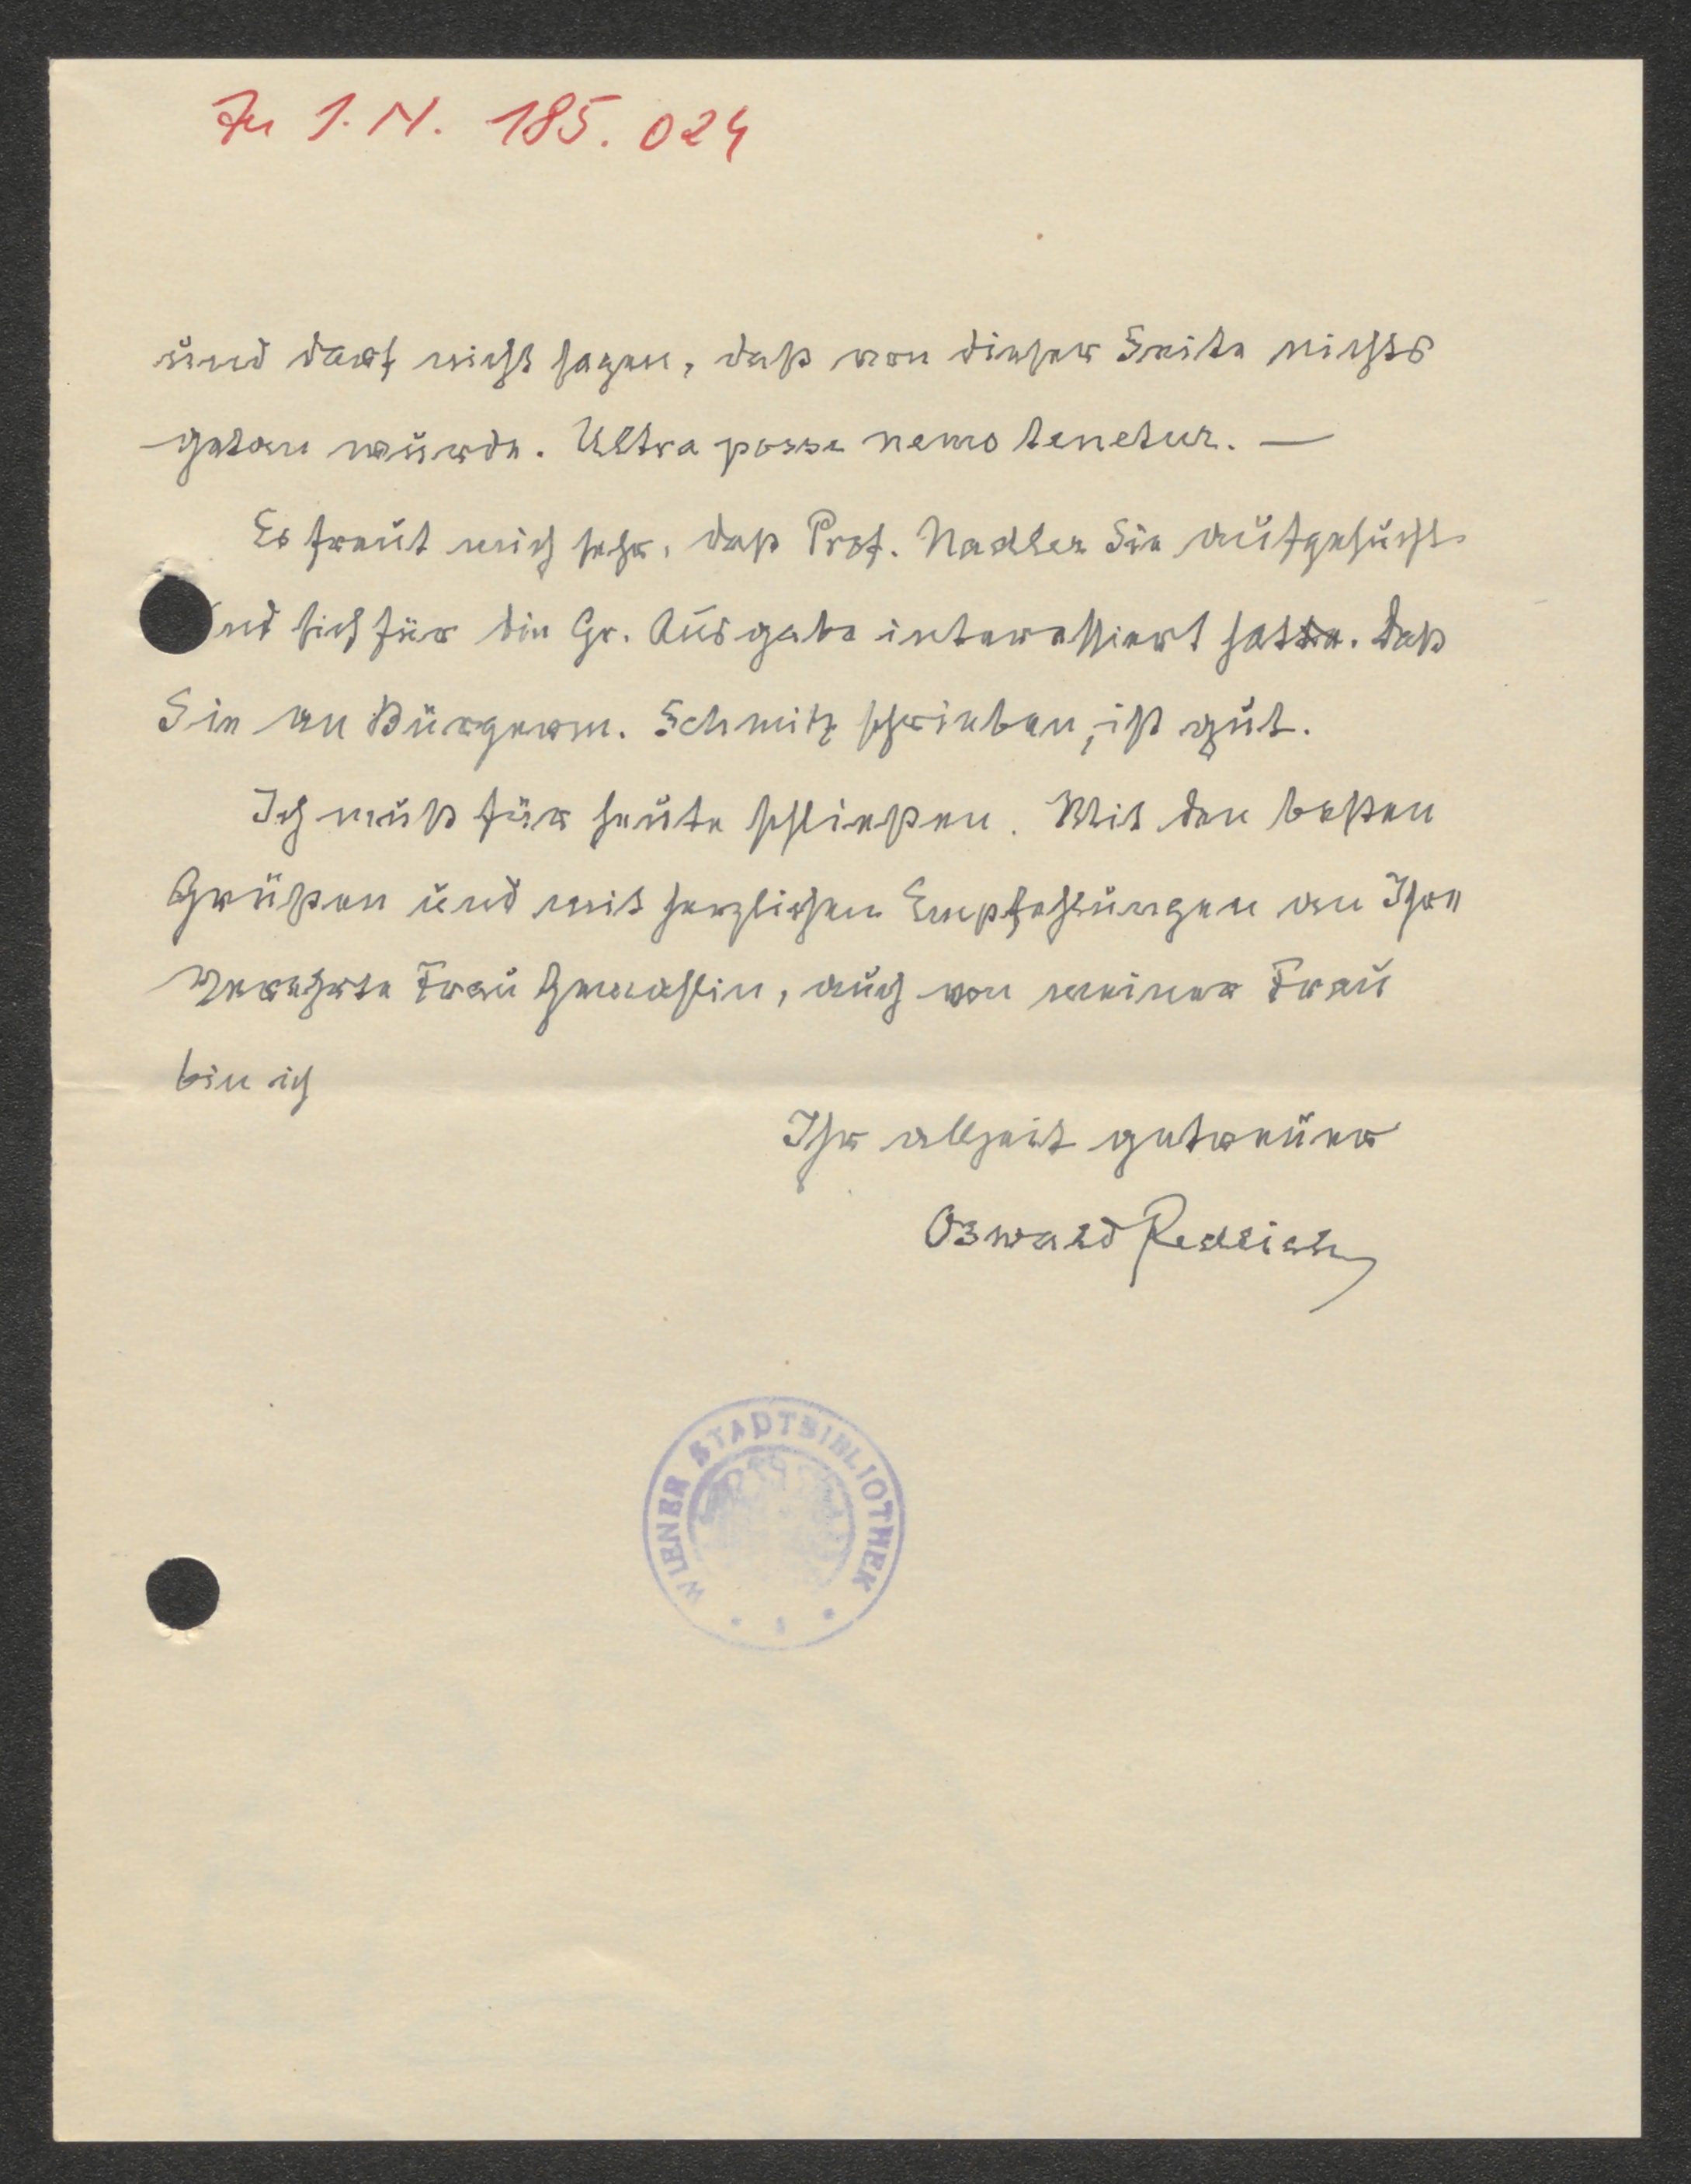 Zu I.N. 185.024
und darf nicht sagen, daß von dieser Seite nichts
getan wurde. Ultra posse nemo tenetur. —
Es freut mich sehr, daß Prof. Nadler Sie aufgesucht
und sich für die Gr. Ausgabe interessiert hatte. Daß
Sie an Bürgerm. Schmitz schrieben, ist gut.
Ich muß für heute schließen. Mit den besten
Grüßen und mit herzlichen Empfehlungen an Ihre
verehrte Frau Gemahlin, auch von meiner Frau
bin ich
Ihr allzeit getreuer
Oswald Redlich
WIENER STADTBIBLIOTHEK